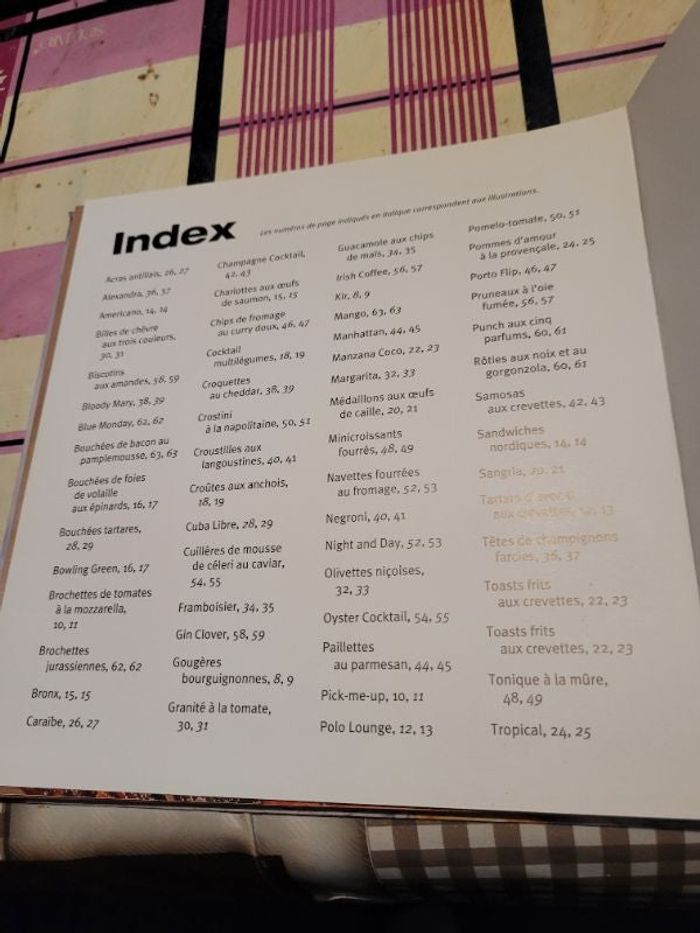 Index
Les numéros de page indiqués en italique correspondent aux illustrations.
Acras antillais, 26, 27
Alexandra, 36, 37
Americano, 14, 14
Billes de chèvre
aux trois couleurs,
30, 31
Biscotins
aux amandes, 58, 59
Bloody Mary, 38, 39
Blue Monday, 62, 62
Bouchées de bacon au
pamplemousse, 63, 63
Bouchées de foies
de volaille
aux épinards, 16, 17
Bouchées tartares,
28, 29
Bowling Green, 16, 17
Brochettes de tomates
à la mozzarella,
10, 11
Brochettes
jurassiennes, 62, 62
Bronx, 15, 15
Caraïbe, 26, 27
Champagne Cocktail,
42, 43
Charlottes aux œufs
de saumon, 15, 15
Chips de fromage
au curry doux, 46, 47
Cocktail
multilégumes, 18, 19
Croquettes
au cheddar, 38, 39
Crostini
à la napolitaine, 50, 51
Croustilles aux
langoustines, 40, 41
Croûtes aux anchois,
18, 19
Cuba Libre, 28, 29
Cuillères de mousse
de céleri au caviar,
54, 55
Framboisier, 34, 35
Gin Clover, 58, 59
Gougères
bourguignonnes, 8, 9
Granité à la tomate,
30, 31
Guacamole aux chips
de maïs, 34, 35
Irish Coffee, 56, 57
Kir, 8, 9
Mango, 63, 63
Manhattan, 44, 45
Manzana Coco, 22, 23
Margarita, 32, 33
Médaillons aux œufs
de caille, 20, 21
Minicroissants
fourrés, 48, 49
Navettes fourrées
au fromage, 52, 53
Negroni, 40, 41
Night and Day, 52, 53
Olivettes niçoises,
32, 33
Oyster Cocktail, 54, 55
Paillettes
au parmesan, 44, 45
Pick-me-up, 10, 11
Polo Lounge, 12, 13
Pomelo-tomate, 50, 51
Pommes d'amour
à la provençale, 24, 25
Porto Flip, 46, 47
Pruneaux à l'oie
fumée, 56, 57
Punch aux cinq
parfums, 60, 61
Rôties aux noix et au
gorgonzola, 60, 61
Samosas
aux crevettes, 42, 43
Sandwiches
nordiques, 14, 14
Sangria, 20, 21
Tartare d'avocat
aux crevettes, 13
Têtes de champignons
farcies, 36, 37
Toasts frits
aux crevettes, 22, 23
Toasts frits
aux crevettes, 22, 23
Tonique à la mûre,
48, 49
Tropical, 24, 25